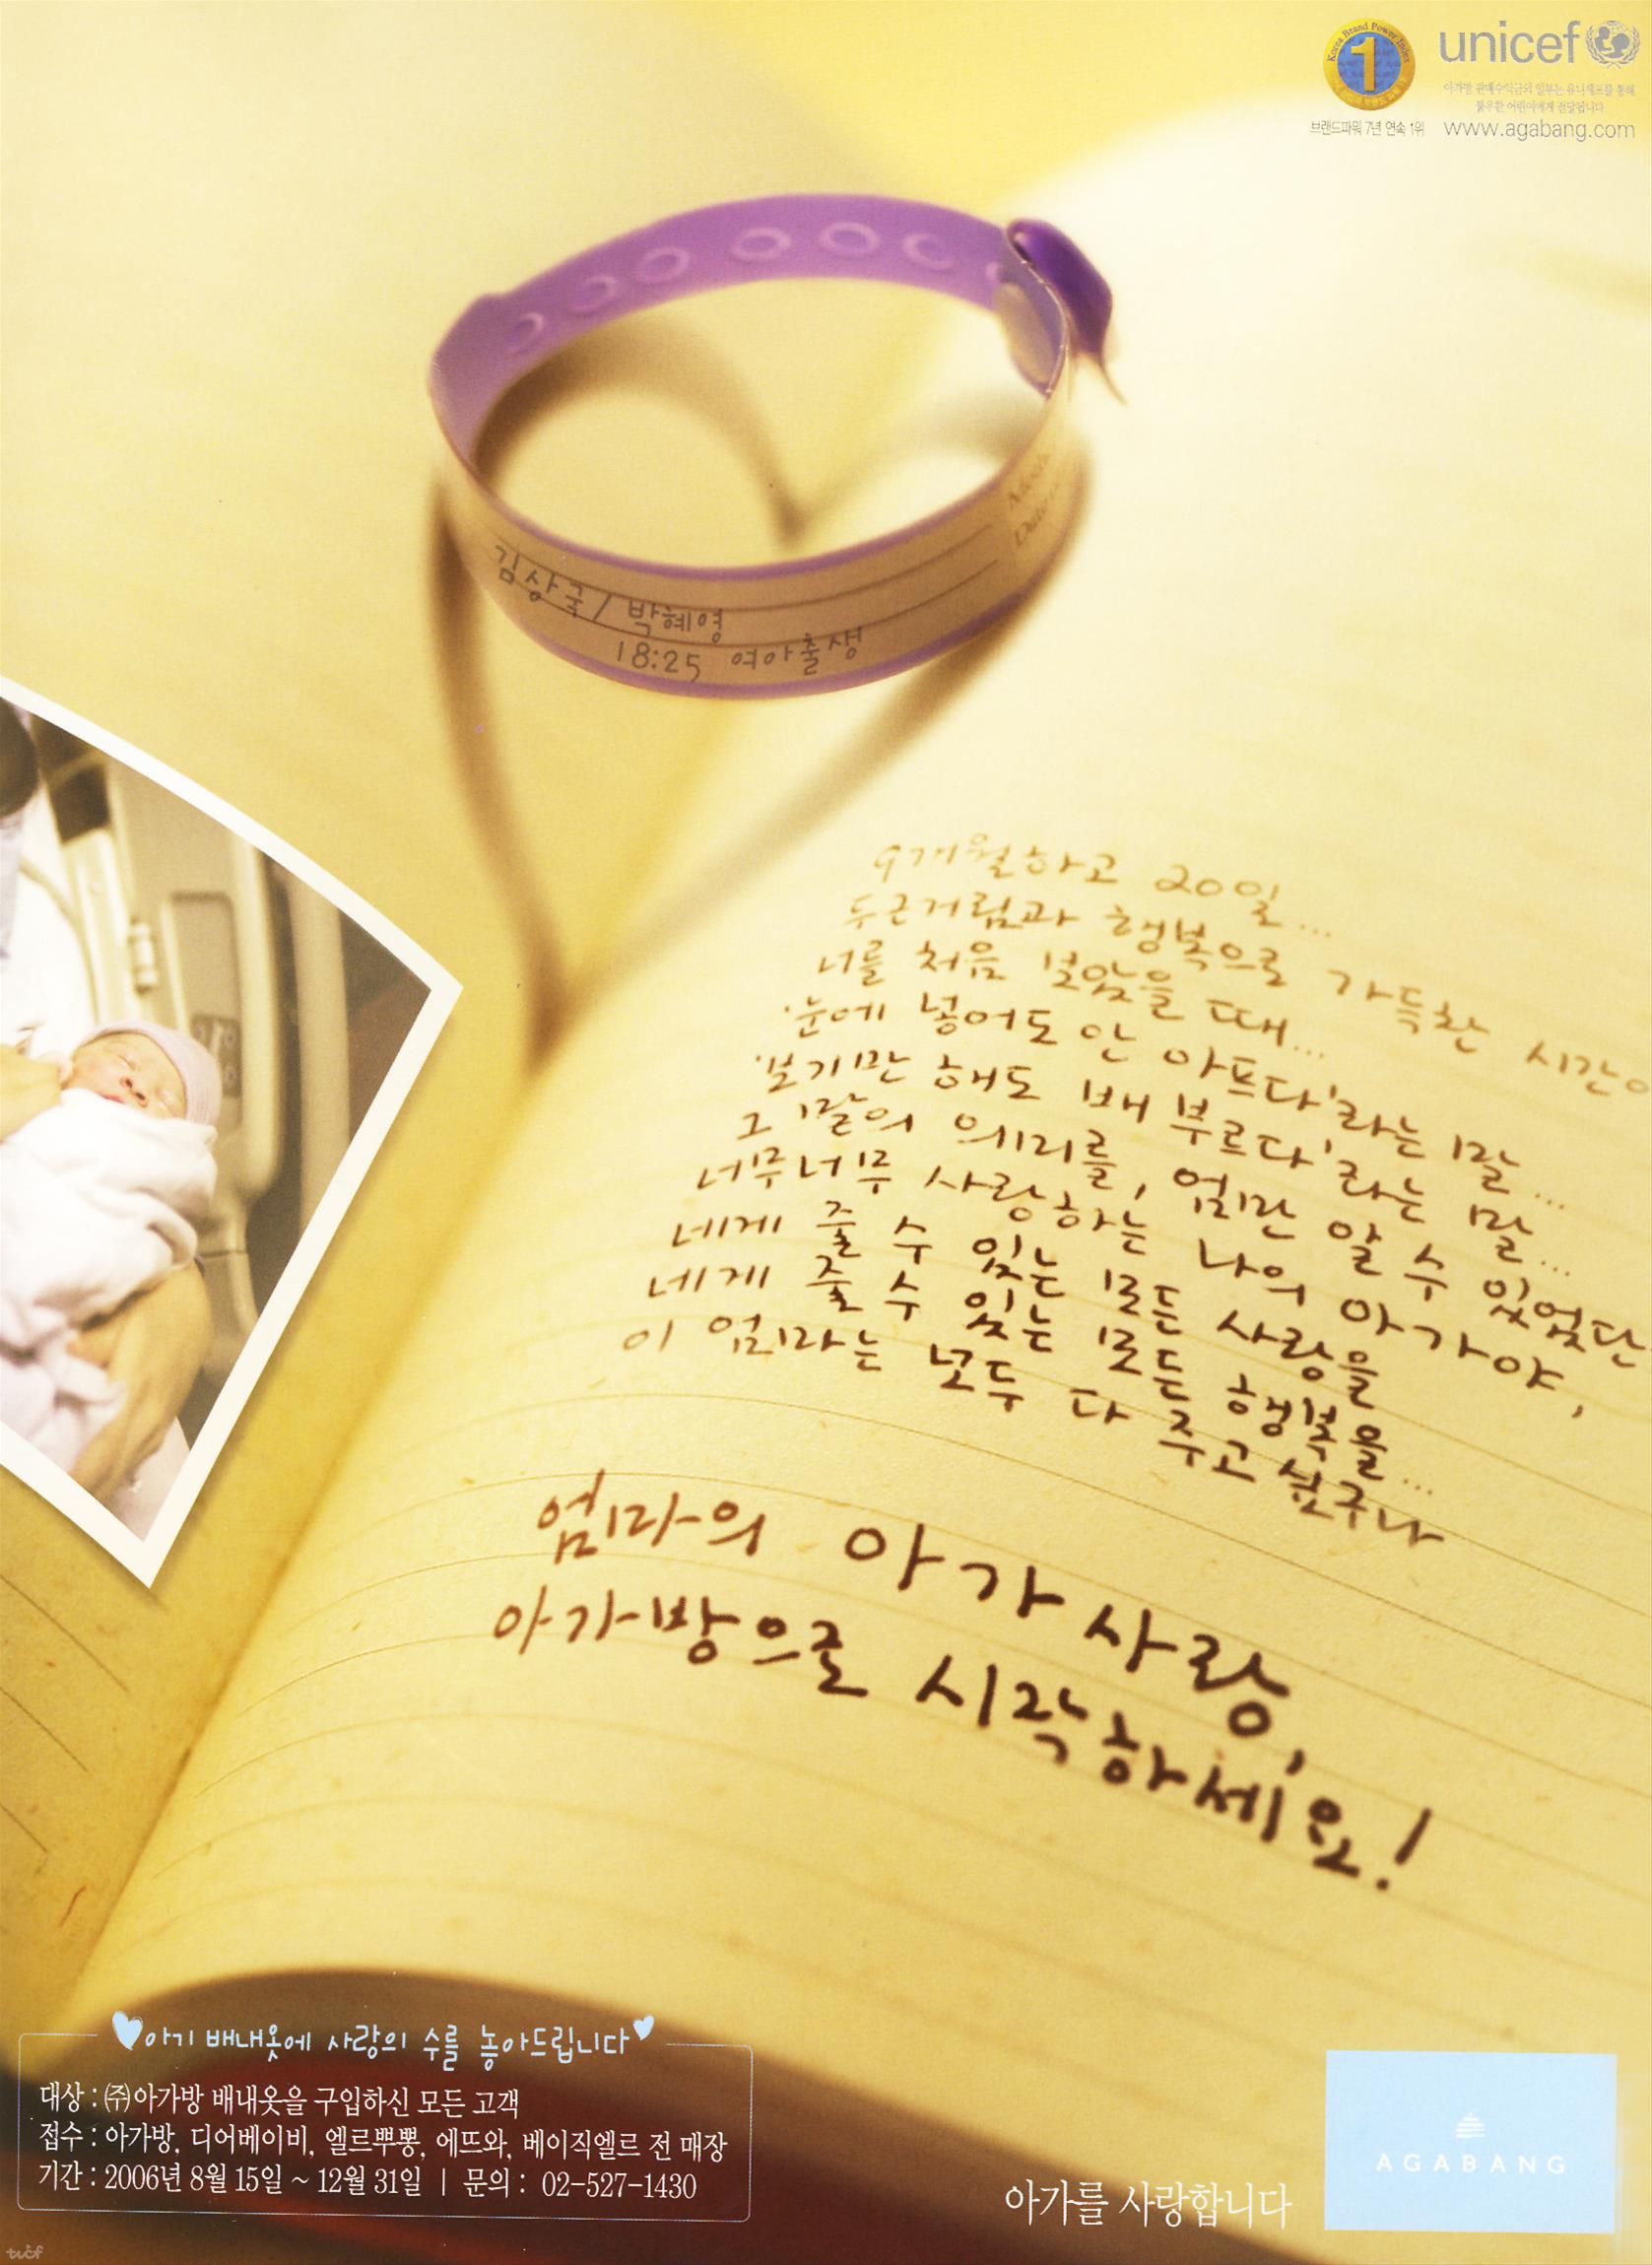 Korea Brand Power Index
1
unicef
아가방 판매수익금의 일부는 유니세프를 통해
불우한 어린이에게 전달됩니다
브랜드파워 7년 연속 1위
www.agabang.com
김상국 / 박혜영
18:25 여아출생
9개월하고 20일...
두근거림과 행복으로 가득찬 시간
너를 처음 보았을 때...
'눈에 넣어도 안 아프다'라는 말...
'보기만 해도 배 부르다'라는 말...
그 말의 의미를, 엄만 알 수 있었단
너무너무 사랑하는 나의 아가야,
네게 줄 수 있는 모든 사랑을
네게 줄 수 있는 모든 행복을...
이 엄마는 모두 다 주고 싶구나
엄마의 아가사랑,
아가방으로 시작하세요!
아기 배내옷에 사랑의 수를 놓아드립니다
대상 : ㈜아가방 배내옷을 구입하신 모든 고객
접수 : 아가방, 디어베이비, 엘르뿌뽕, 에뜨와, 베이직엘르 전 매장
기간 : 2006년 8월 15일 ~ 12월 31일 | 문의 : 02-527-1430
아가를 사랑합니다
AGABANG